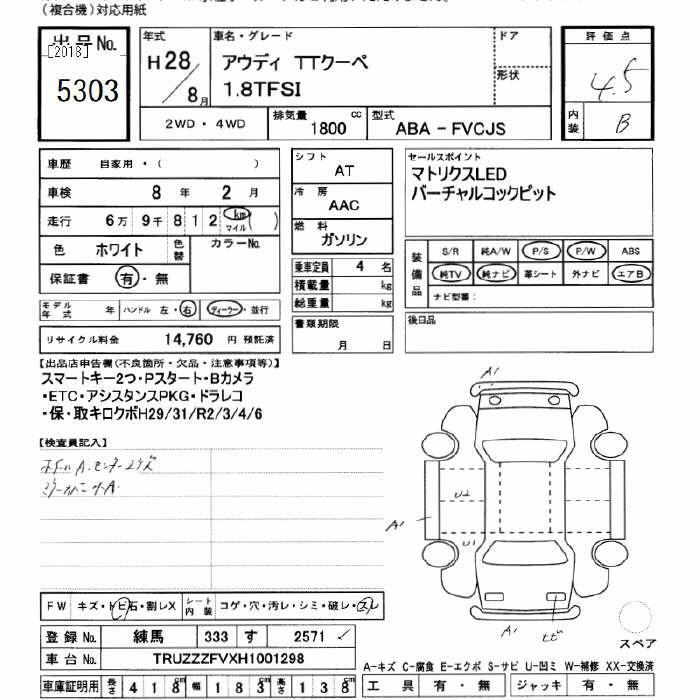 (複合機)対応用紙
出品No.
[2018]
5303
年式
H28/8月
車名・グレード
アウディ TTクーペ
1.8TFSI
ドア
形状
評価点
4.5
内装
B
2WD・4WD
排気量
1800 cc
型式
ABA-FVCJS
車歴 自家用・( )
車検 8年 2月
走行 6万 9千 8 1 2 km マイル ( )
色 ホワイト 色替 カラーNo.
保証書 有・無
モデル年式 年 ハンドル 左・右 ディーラー・並行
リサイクル料金 14,760 円 預託済
シフト AT
冷房 AAC
燃料 ガソリン
乗車定員 4 名
積載量 kg
総重量 kg
書類期限
月 日
セールスポイント
マトリクスLED
バーチャルコックピット
装備品
S/R 純A/W P/S P/W ABS
純TV 純ナビ 革シート 外ナビ エアB
ナビ型番:
後日品
【出品店申告欄(不良箇所・欠品・注意事項等)】
スマートキー2つ・Pスタート・Bカメラ
・ETC・アシスタンスPKG・ドラレコ
・保・取キロクボH29/31/R2/3/4/6
【検査員記入】
A1
U2
A1
U1
A1
トビ
FW キズ・トビ石・割レX シート内装 コゲ・穴・汚レ・シミ・破レ・スレ
登録No. 練馬 333 す 2571
車台No. TRUZZZFVXH1001298
車庫証明用 長さ 418cm 幅 183cm 高さ 138cm
スペア
A-キズ C-腐食 E-エクボ S-サビ U-凹ミ W-補修 XX-交換済
工具 有・無 ジャッキ 有・無